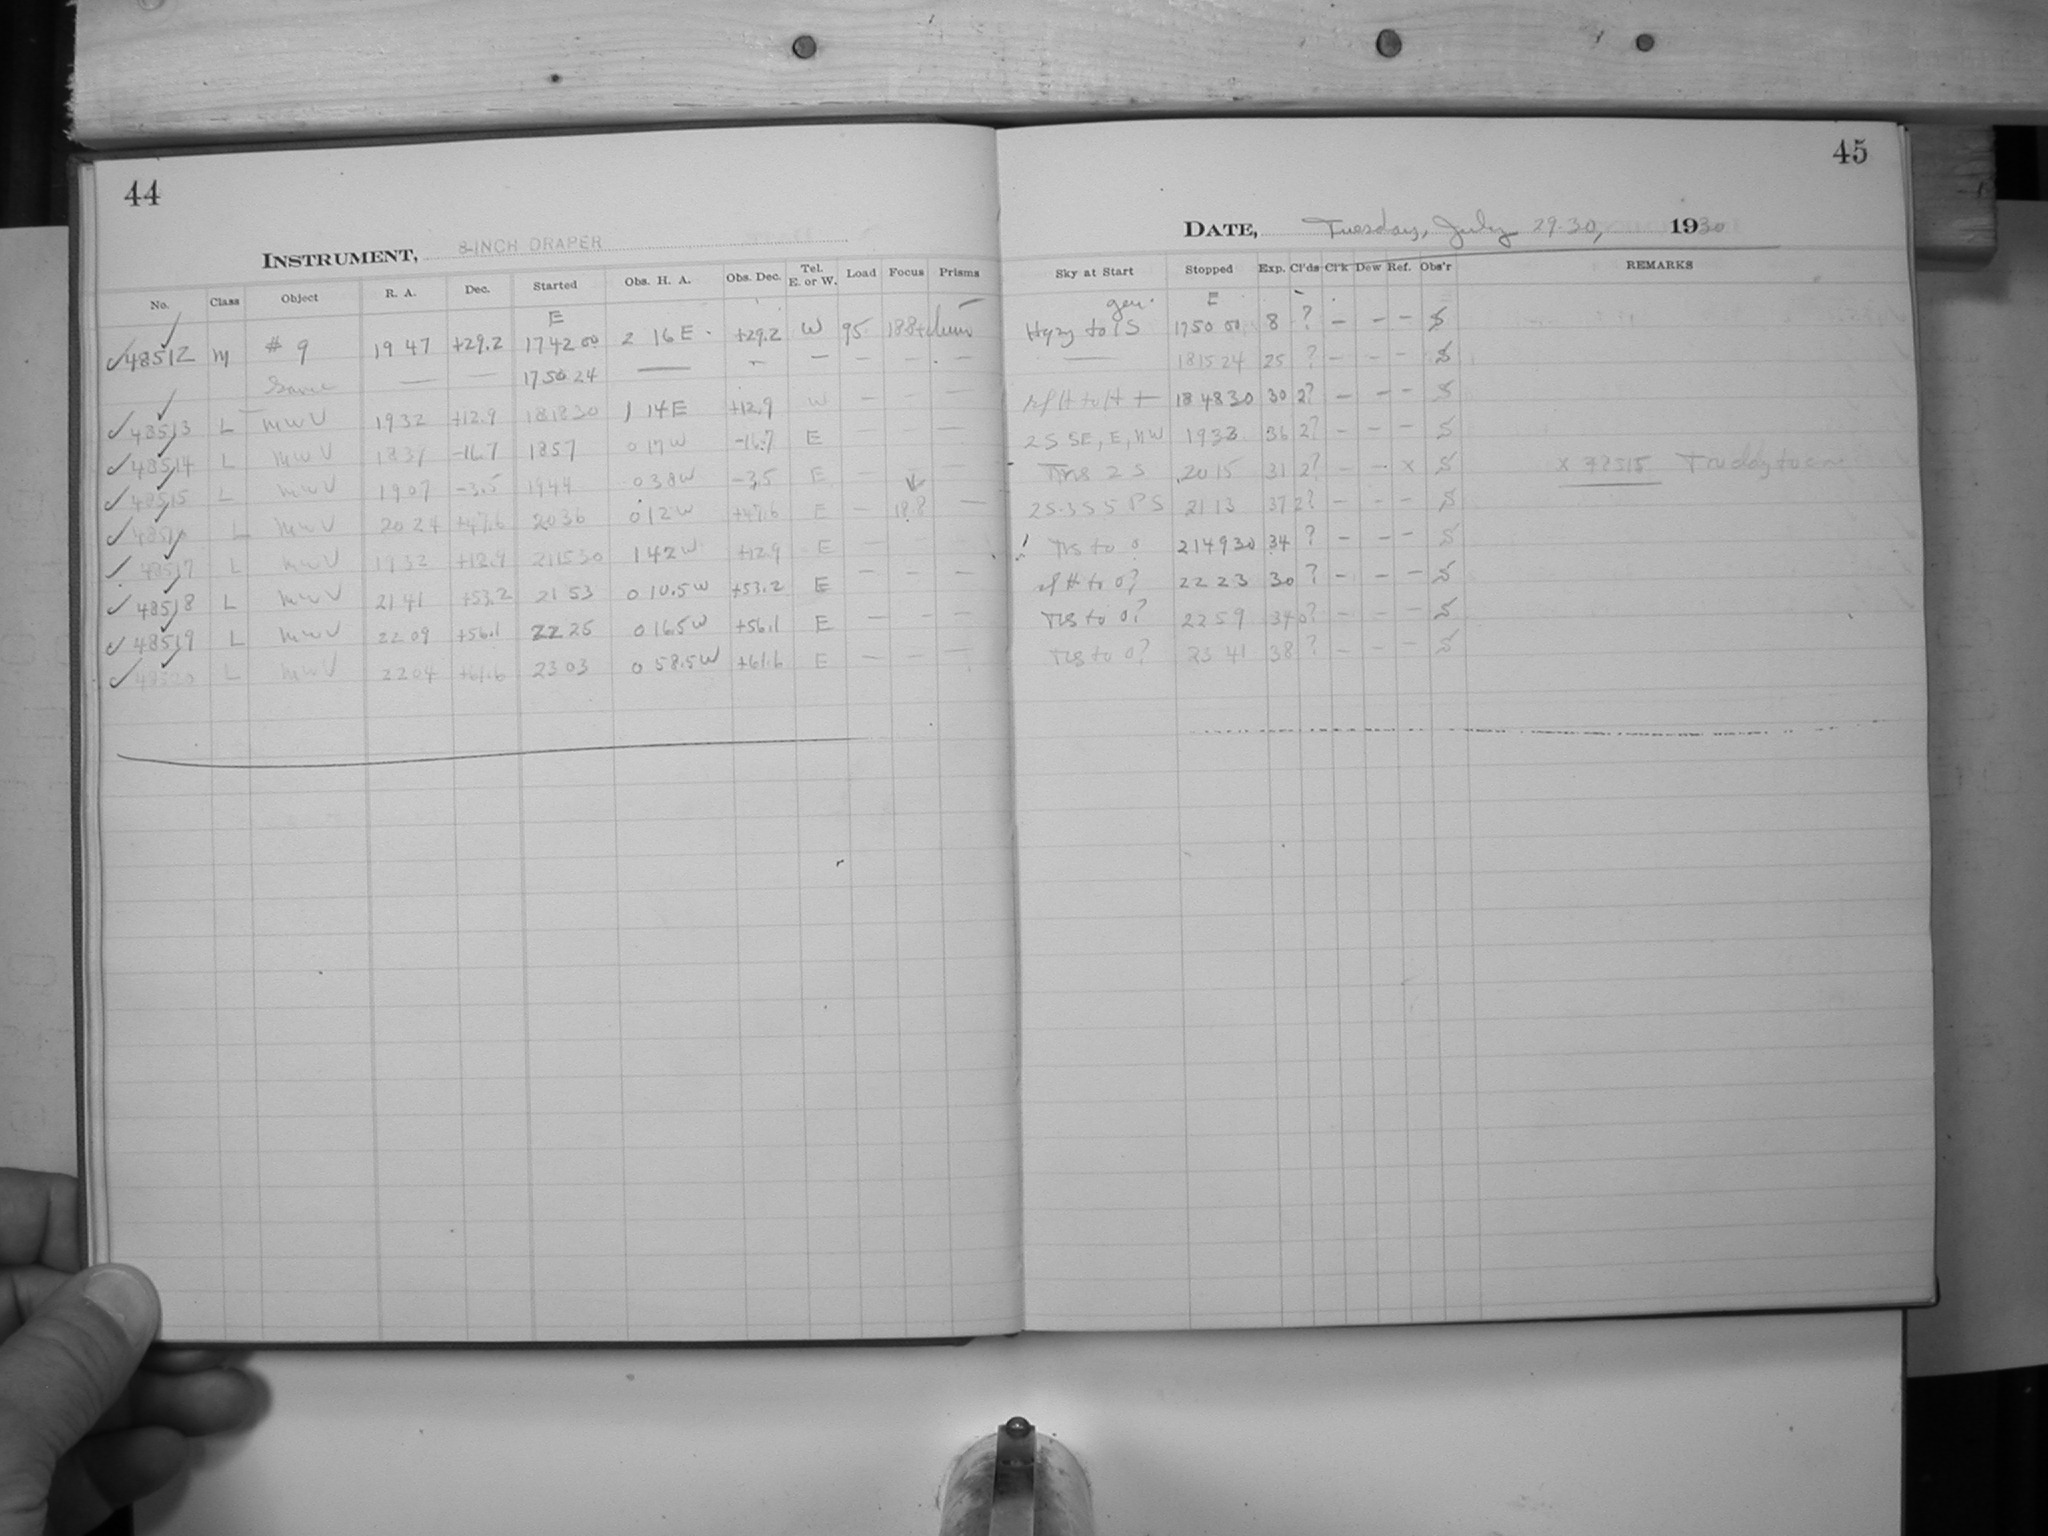 44
INSTRUMENT, 8-INCH DRAPER
No. Class Object R. A. Dec. Started Obs. H. A. Obs. Dec. Tel. E. or W. Load Focus Prisms
E
48512 M # 9 19 47 +29.2 1742 00 2 16 E +29.2 W 95 188
Same — — 1750 24 — — — — — —
48513 L MWV 1932 +12.9 181830 1 14 E +12.9 W — — —
48514 L MWV 1831 -16.7 1857 0 17 W -16.7 E — — —
48515 L MWV 1907 -3.5 1944 0 38 W -3.5 E
48516 L MWV 2024 +47.6 2036 0 12 W +47.6 E — 18.8 —
48517 L MWV 1932 +12.9 211530 1 42 W +12.9 E — — —
48518 L MWV 2141 +53.2 2153 0 10.5 W +53.2 E — — —
48519 L MWV 2209 +56.1 2225 0 16.5 W +56.1 E — — —
48520 L MWV 2204 +61.6 2303 0 58.5 W +61.6 E — — —
45
DATE, Tuesday, July 29-30, 1930
Sky at Start Stopped Exp. Cl'ds Cl'k Dew Ref. Obs'r REMARKS
gen. E
to 1S 1750 00 8 ? — — — S
— 1815 24 25 ? — — — S
to H + 184830 30 2? — — — S
2S SE, E, NW 1933 36 2? — — — S
2 S 2015 31 2? — — x S x
2S PS 2113 37 2? — — — S
to 0 214930 34 ? — — — S
to 0? 2223 30 ? — — — S
to 0? 2259 34 0? — — — S
to 0? 2341 38 ? — — — S